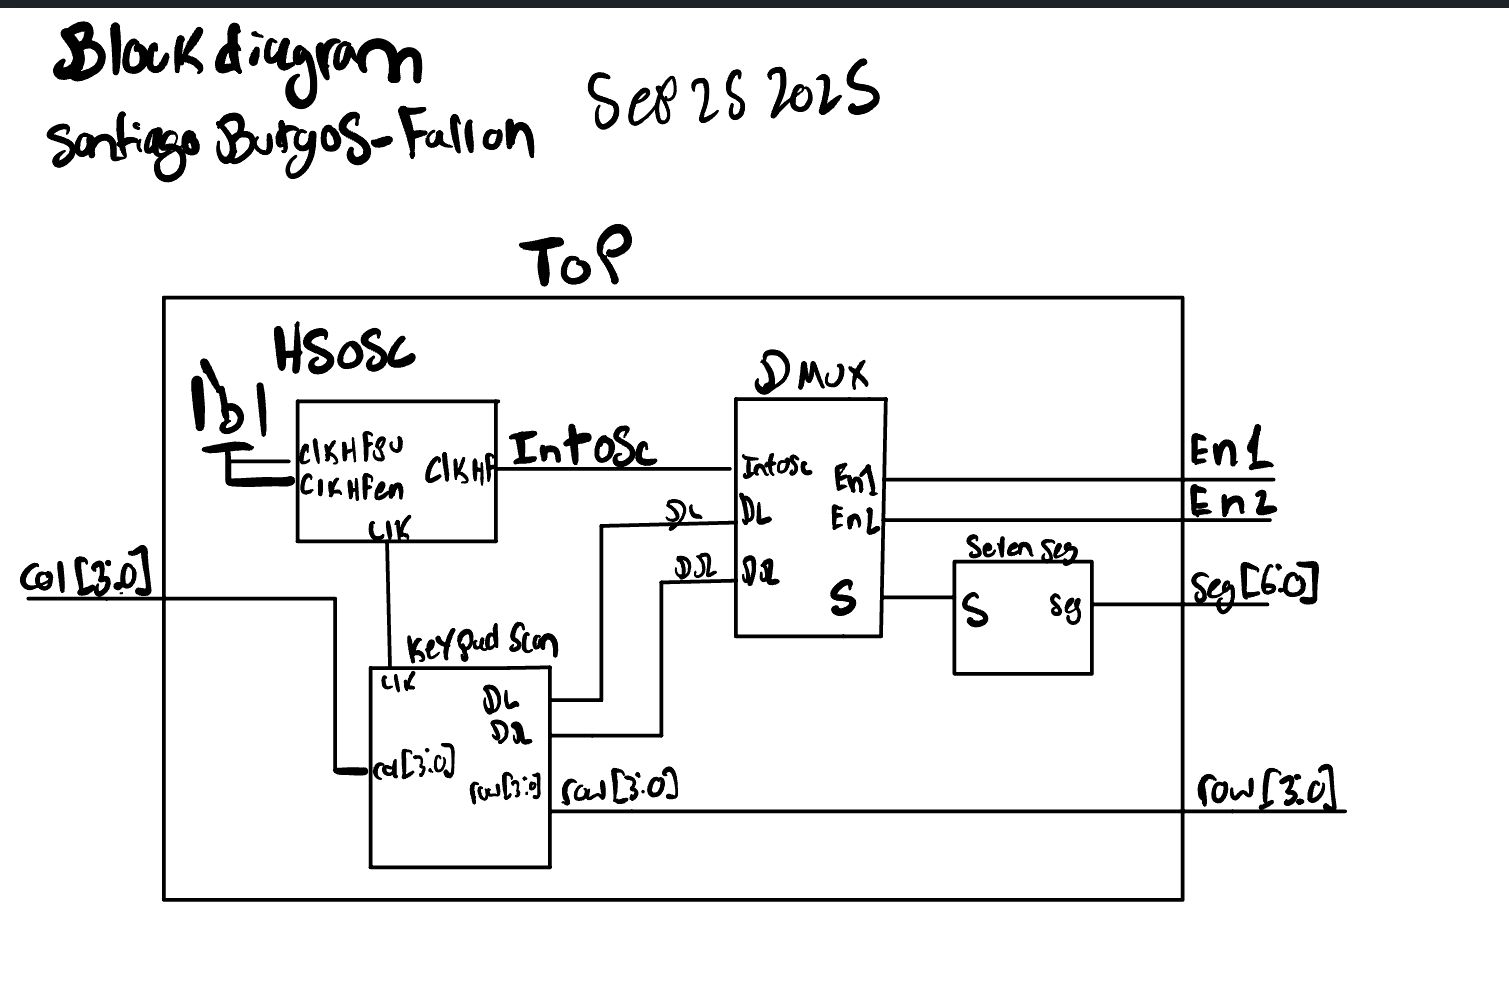 Block diagram
Santiago Burgos-Fallon
Sep 25 2025
TOP
HSOSC
1'b1
ClKHFPU
ClKHFen
ClKHF
ClK
IntOSC
DMUX
IntOSC
DL
DR
En1
En2
S
DL
DR
En1
En2
Seven Seg
S
Seg
Seg[6:0]
Col[3:0]
Keypad Scan
ClK
DL
DR
col[3:0]
row[3:0]
row[3:0]
row[3:0]